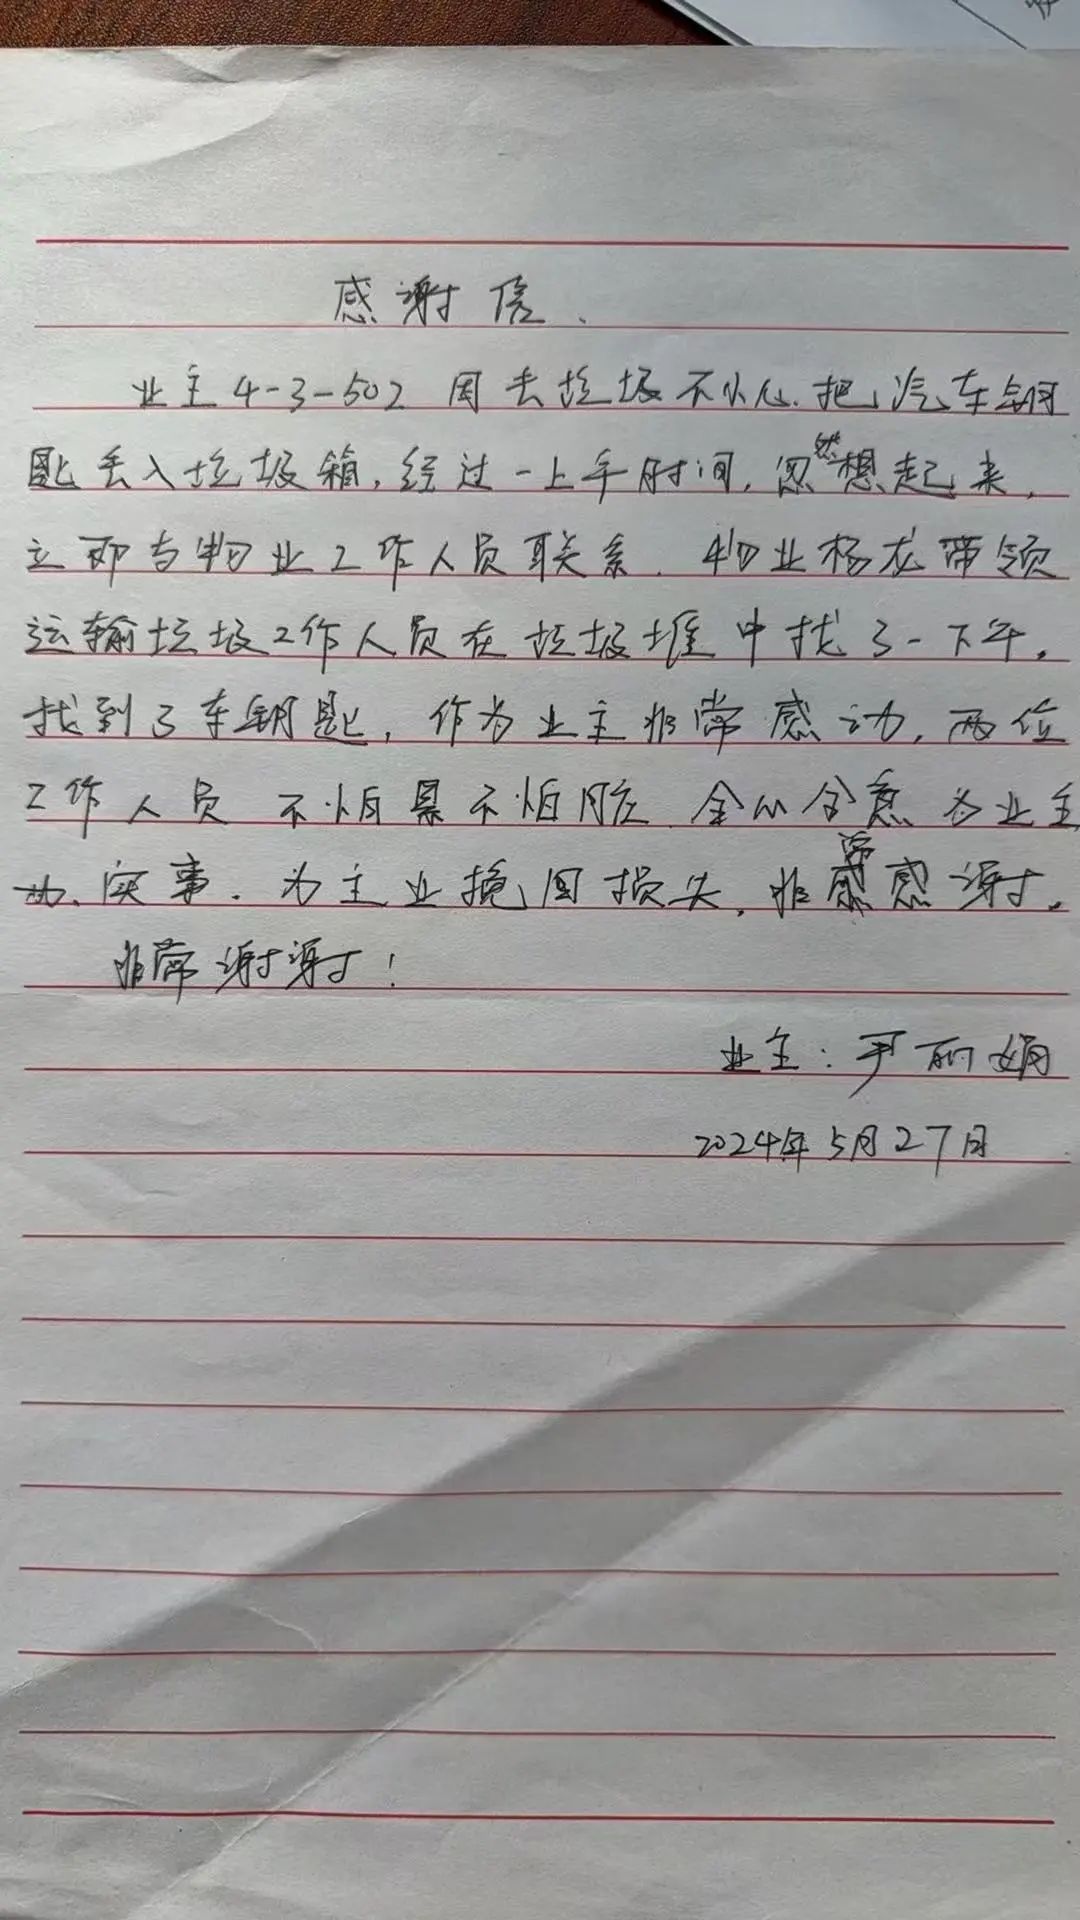 感谢信.
业主4-3-502 因去垃圾不小心.把汽车钥
匙丢入垃圾箱,经过一上午时间,忽然想起来,
立即与物业工作人员联系.物业杨龙带领
运输垃圾工作人员在垃圾堆中找了一下午。
找到了车钥匙,作为业主非常感动,两位
工作人员 不怕累不怕脏 全心全意为业主
办实事.为主业挽回损失,非常感谢。
非常谢谢!
业主:尹丽娟
2024年5月27日